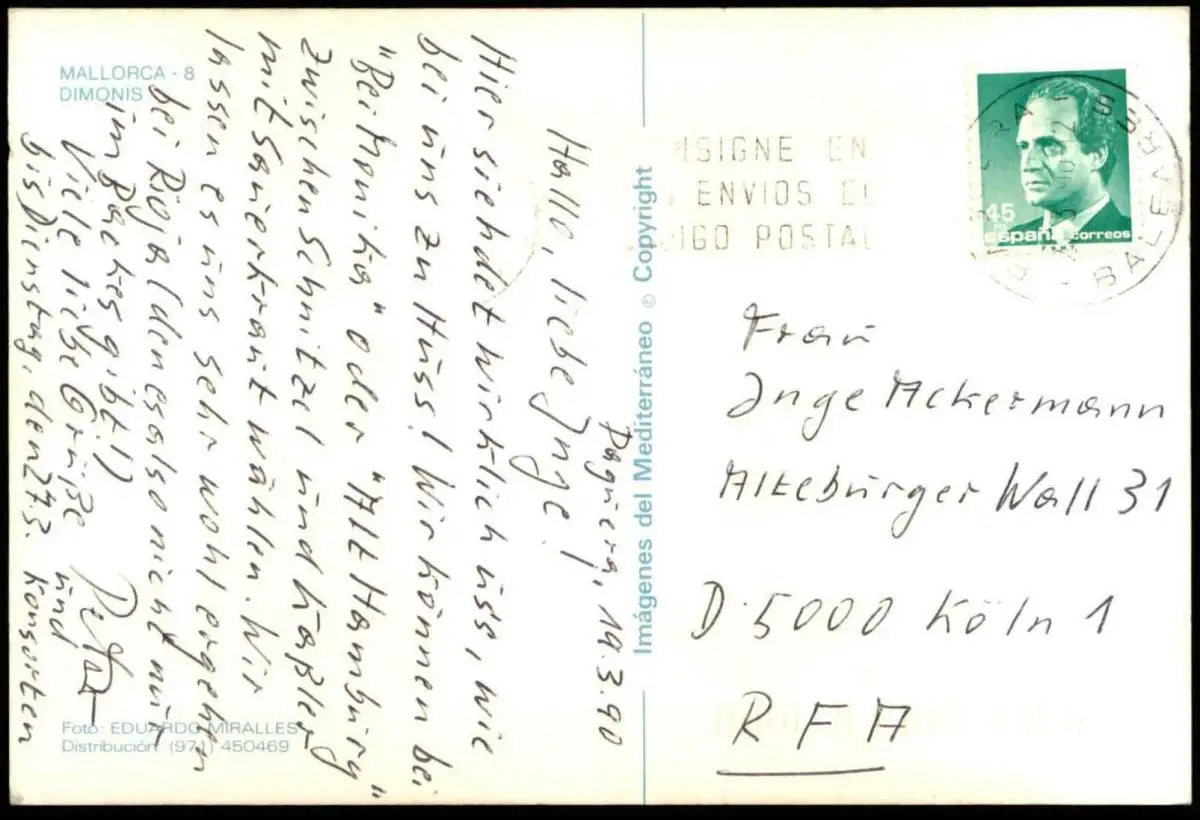 MALLORCA - 8
DIMONIS
Paguera, 19.3.90
Hallo, liebe Inge!
Hier siehdet wirklich üss, wie
bei üns zu Hüss! Wir können bei
"Bei Monika" oder "Alt Hamburg"
zwischen Schnitzel und Kaßler
mit Sauerkraut wählen. Wir
lassen es uns sehr wohl ergehen
bei Rioja (den es also nicht nur
im Baches gibt!)
Viele liebe Grüße
bis Dienstag, den 27.3.
und Konsorten
Foto: EDUARDO MIRALLES
Distribución (971) 450469
Imágenes del Mediterráneo © Copyright
SIGNE EN
ENVIOS EL
IGO POSTAL
BALEARES
45
españa correos
Frau
Inge Ackermann
Alteburger Wall 31
D-5000 Köln 1
RFA